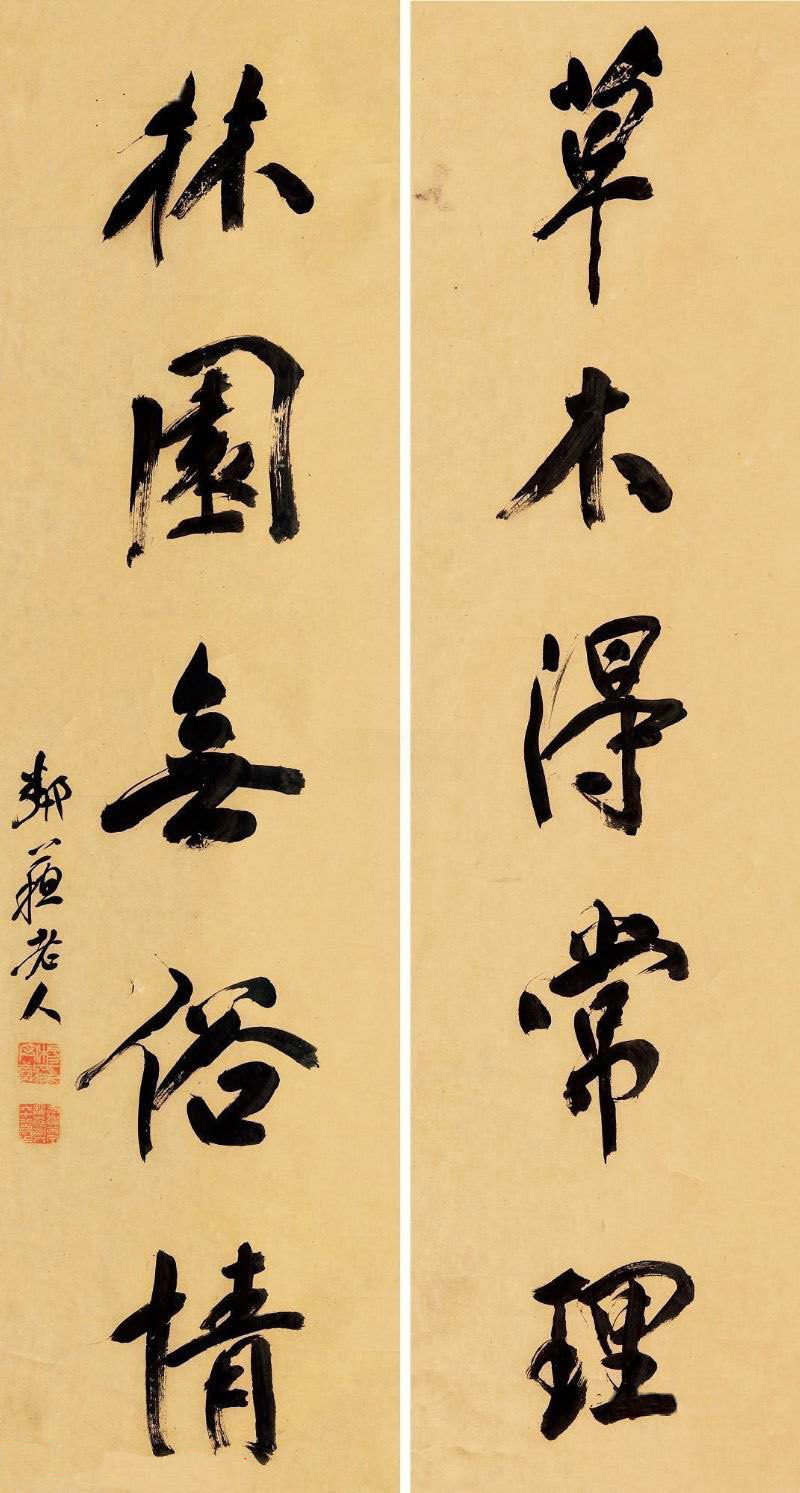 草木得常理
林園無俗情
鄰蘇老人